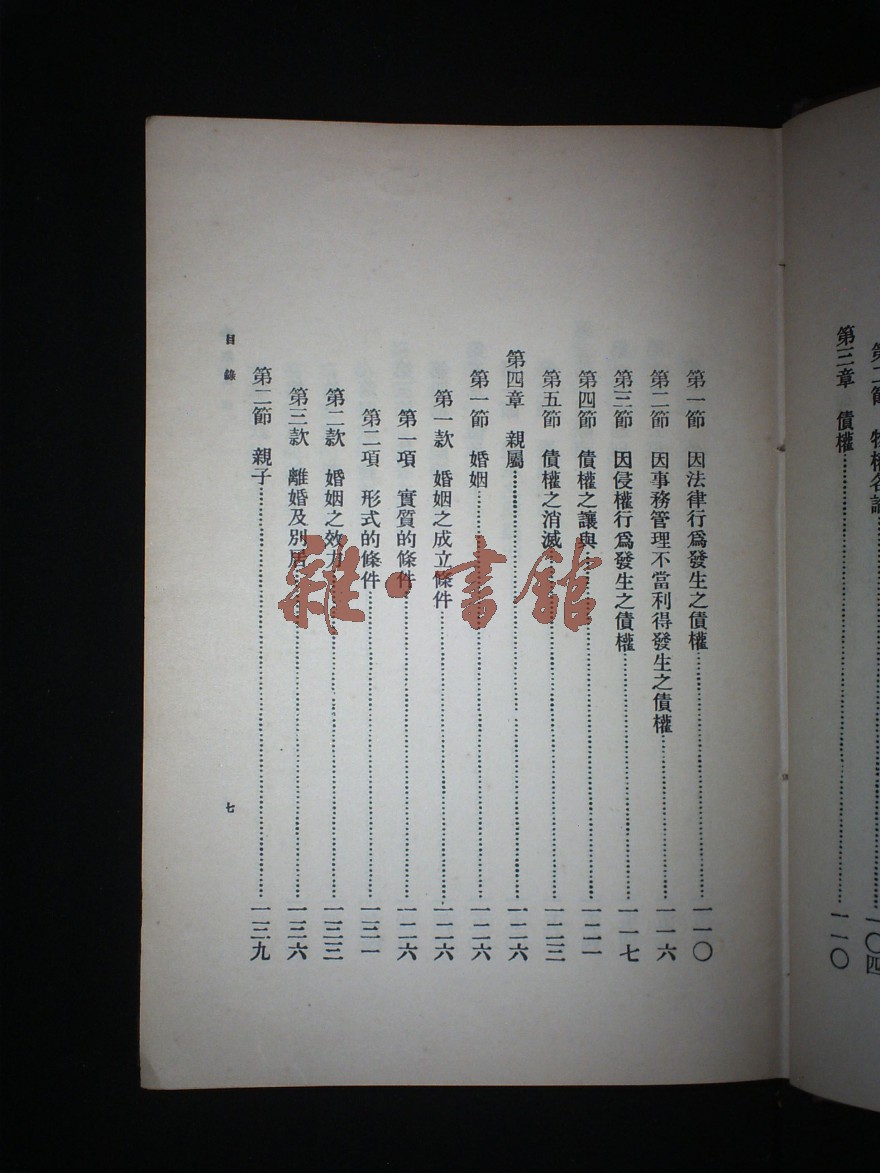 第二節 物權各論……一〇四
第三章 債權……一一〇
第一節 因法律行爲發生之債權……一一〇
第二節 因事務管理不當利得發生之債權……一一六
第三節 因侵權行爲發生之債權……一一七
第四節 債權之讓與……一二一
第五節 債權之消滅……一二三
第四章 親屬……一二六
第一節 婚姻……一二六
第一款 婚姻之成立條件……一二六
第一項 實質的條件……一二六
第二項 形式的條件……一三一
第二款 婚姻之效力……一三三
第三款 離婚及別居……一三六
第二節 親子……一三九
目錄 七
雜·書館